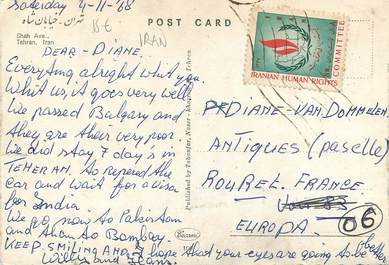 Saterday 4-11-'68
تهران - خیابان شاه
Shah Ave.,
Tehran, Iran
15t
IRAN
POST CARD
IRANIAN HUMAN RIGHTS
COMMITTEE
DEAR - DIANE.
Everything alright whit you.
Whit us, it goes very well.
We passed Bulgary and
they are theer very poor.
We did stay 7 day's in
TEHERAN. to repered the
car and wait for a visa
for India.
We go now to Pakistan
and than to Bombay.
KEEP. SMILING AND I hope that your eyes are going to be better
Willy and Jeans.
Published by Tehranfar, Naser-Khosrow Tehran
DIANE-VAN DOMMELEN.
ANTIQUES (paselle)
ROURET. FRANCE
06
EUROPA.